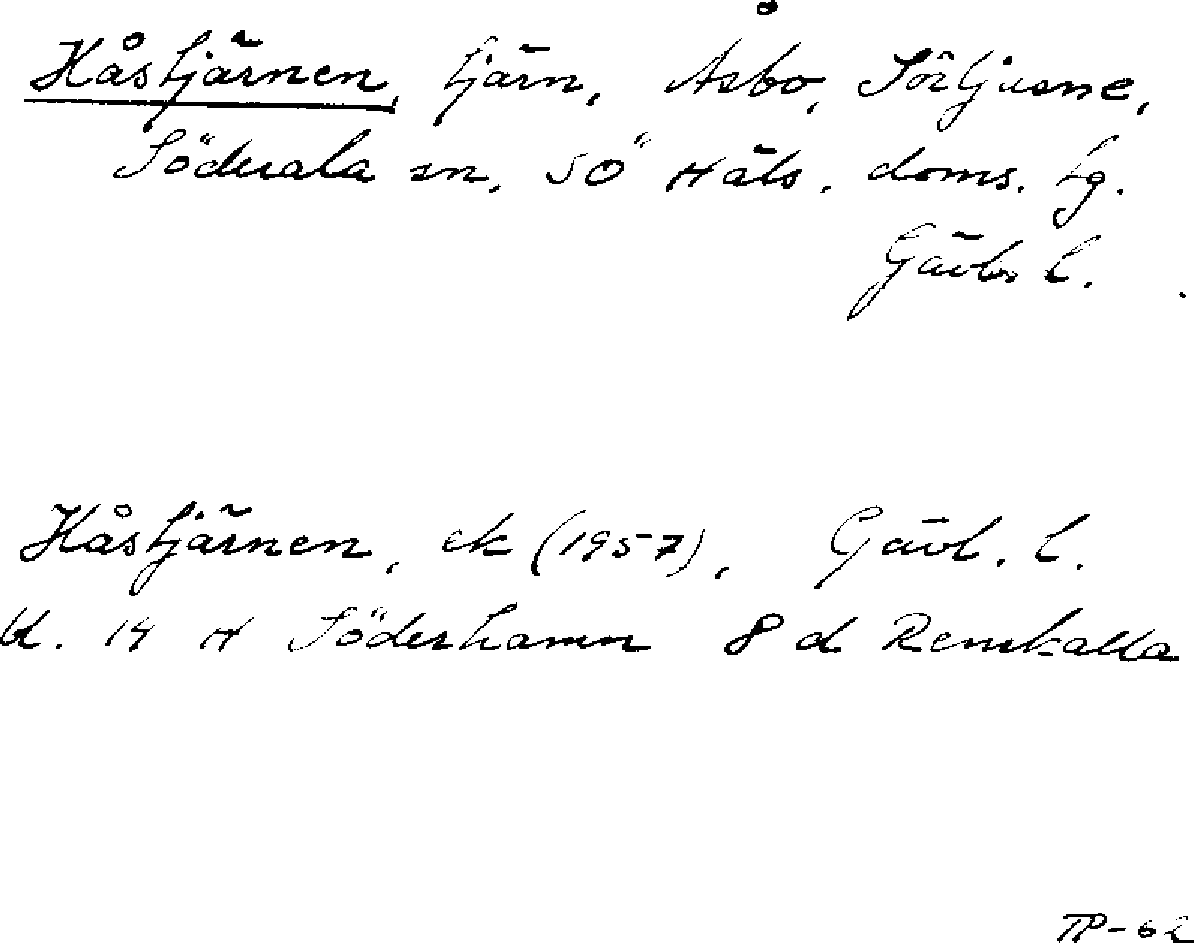 Håstjärnen, tjärn, Åsbo, Sörljusne,
Söderala sn, SÖ Häls. doms. tg.
Gävlebs l.
Håstjärnen, ek (1957), Gävl. l.
bl. 14 H Söderhamn 8 d Renskalla
TP-62